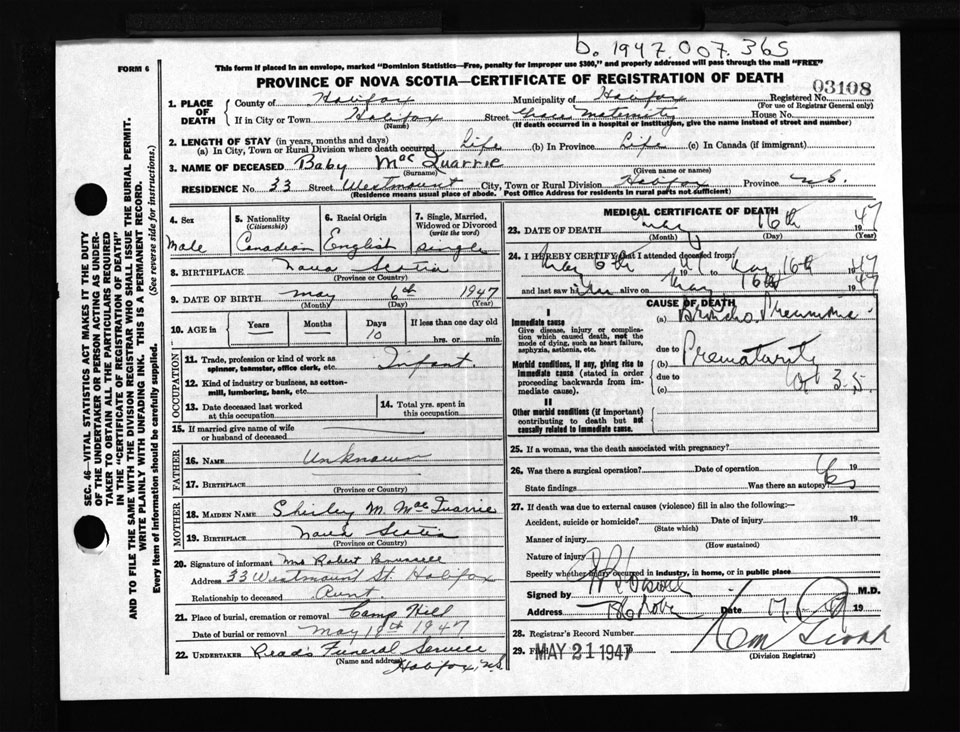 b. 1947.007.365
FORM 6
This form if placed in an envelope, marked "Dominion Statistics—Free, penalty for improper use $300," and properly addressed will pass through the mail "FREE"
PROVINCE OF NOVA SCOTIA—CERTIFICATE OF REGISTRATION OF DEATH
03108
1. PLACE OF DEATH
County of Halifax Municipality of Halifax Registered No.
(For use of Registrar General only)
If in City or Town Halifax Street Grace Maternity House No.
(Name) (If death occurred in a hospital or institution, give the name instead of street and number)
2. LENGTH OF STAY (in years, months and days)
(a) In City, Town or Rural Division where death occurred Life (b) In Province Life (c) In Canada (if immigrant)
3. NAME OF DECEASED Baby MacQuarrie
(Surname) (Given name or names)
RESIDENCE No. 33 Street Westmount City, Town or Rural Division Halifax Province N.S.
(Residence means usual place of abode. Post Office Address for residents in rural parts not sufficient)
4. Sex
Male
5. Nationality
(Citizenship)
Canadian
6. Racial Origin
English
7. Single, Married, Widowed or Divorced
(write the word)
Single
8. BIRTHPLACE Nova Scotia
(Province or Country)
9. DATE OF BIRTH May 6th 1947
(Month) (Day) (Year)
10. AGE in Years Months Days If less than one day old
10 hrs. or min.
OCCUPATION
11. Trade, profession or kind of work as
spinner, teamster, office clerk, etc. Infant
12. Kind of industry or business, as cotton-
mill, lumbering, bank, etc.
13. Date deceased last worked
at this occupation
14. Total yrs. spent in
this occupation
15. If married give name of wife
or husband of deceased
FATHER
16. NAME Unknown
17. BIRTHPLACE
(Province or Country)
MOTHER
18. MAIDEN NAME Shirley M. MacQuarrie
19. BIRTHPLACE Nova Scotia
(Province or Country)
20. Signature of informant Mrs Robert
Address 33 Westmount St. Halifax
Relationship to deceased Aunt.
21. Place of burial, cremation or removal Camp Hill
Date of burial or removal May 19th 1947
22. UNDERTAKER Read's Funeral Service
(Name and address) Halifax, N.S.
MEDICAL CERTIFICATE OF DEATH
23. DATE OF DEATH May 16th 1947
(Month) (Day) (Year)
24. I HEREBY CERTIFY that I attended deceased from:
May 6th 1947 to May 16th 1947
and last saw him alive on May 16th 1947
CAUSE OF DEATH
I
Immediate cause
Give disease, injury or complication which caused death, not the mode of dying, such as heart failure, asphyxia, asthenia, etc.
(a) Broncho Pneumonia
due to
Morbid conditions, if any, giving rise to immediate cause (stated in order proceeding backwards from immediate cause).
(b) Prematurity
due to
(c)
II
Other morbid conditions (if important) contributing to death but not causally related to immediate cause.
25. If a woman, was the death associated with pregnancy?
26. Was there a surgical operation? Date of operation 19
State findings Was there an autopsy? Yes
27. If death was due to external causes (violence) fill in also the following:—
Accident, suicide or homicide? Date of injury 19
(State which)
Manner of injury
(How sustained)
Nature of injury
Specify whether injury occurred in industry, in home, or in public place
Signed by M.D.
Address Date 19
28. Registrar's Record Number
29. Filed MAY 21 1947
(Division Registrar)
SEC. 46—VITAL STATISTICS ACT MAKES IT THE DUTY
OF THE UNDERTAKER OR PERSON ACTING AS UNDER-
TAKER TO OBTAIN ALL THE PARTICULARS REQUIRED
IN THE "CERTIFICATE OF REGISTRATION OF DEATH"
AND TO FILE THE SAME WITH THE DIVISION REGISTRAR WHO SHALL ISSUE THE BURIAL PERMIT.
WRITE PLAINLY WITH UNFADING INK. THIS IS A PERMANENT RECORD.
Every item of information should be carefully supplied. (See reverse side for instructions.)